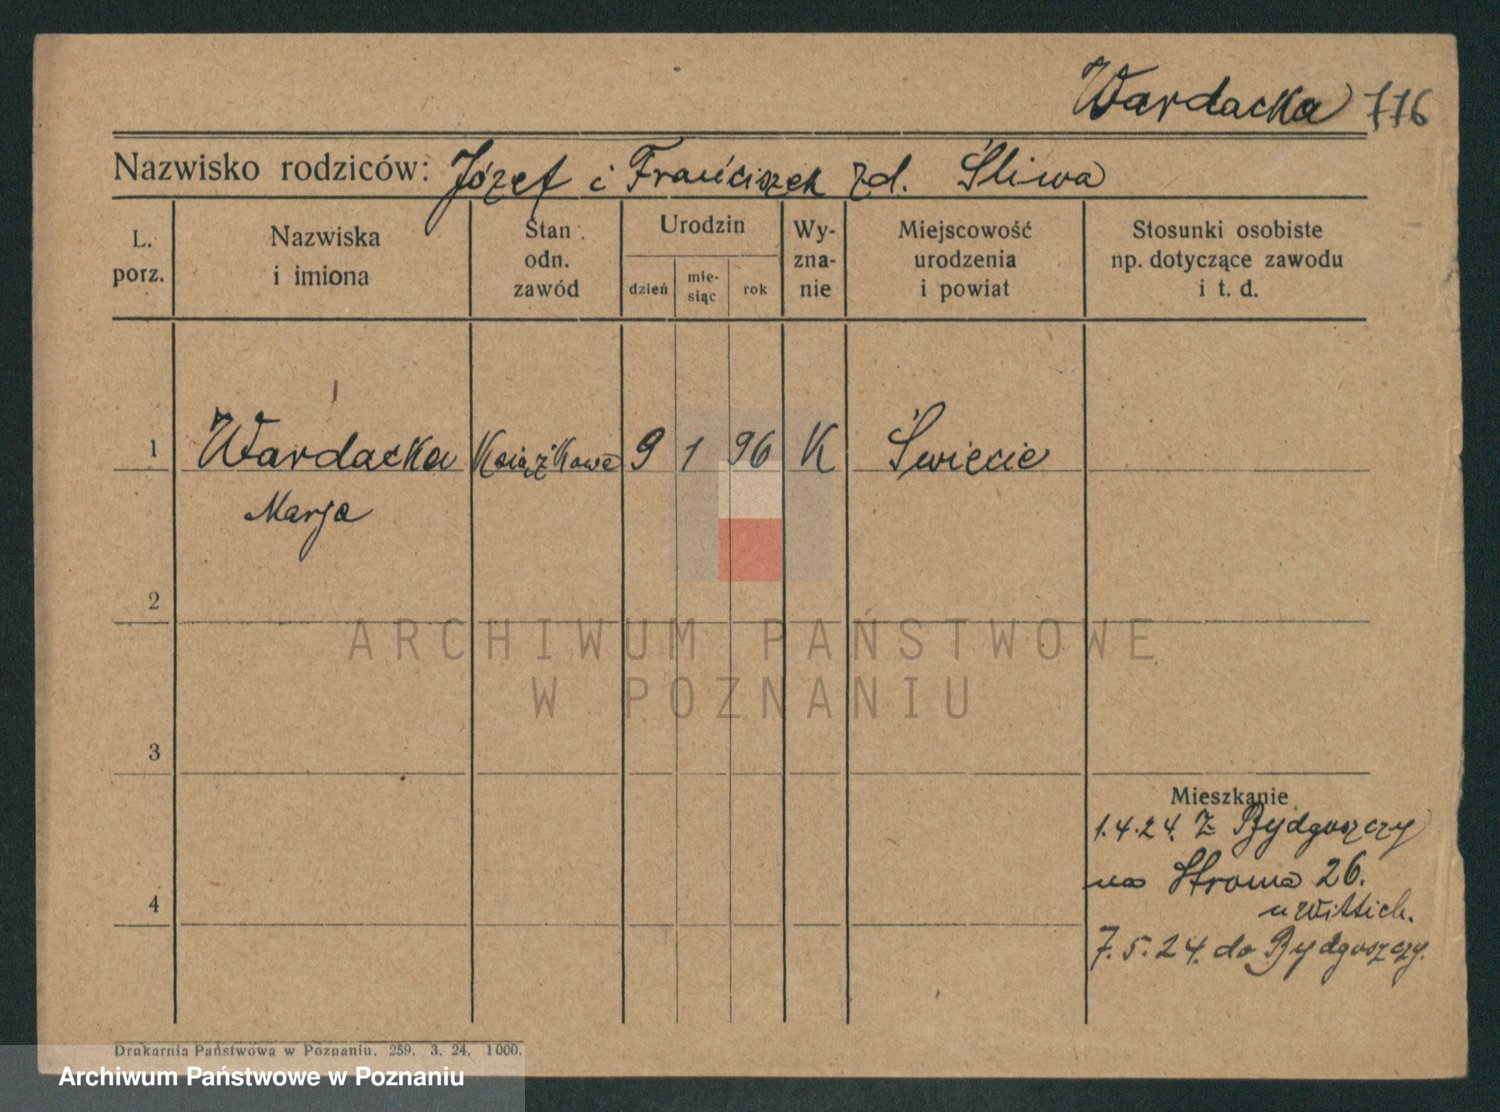 Wardacka 776
Nazwisko rodziców: Józef i Franciszek zd. Śliwa
L. porz.
Nazwiska i imiona
Stan odn. zawód
Urodzin
dzień
mie-siąc
rok
Wy-zna-nie
Miejscowość urodzenia i powiat
Stosunki osobiste np. dotyczące zawodu i t. d.
1 Wardacka Książkowa 9 1 96 K Świecie
Marja
2
3
4
Mieszkanie
1.4.24. z Bydgoszczy
na Stroma 26.
u Wittich.
7.5.24. do Bydgoszczy.
Drukarnia Państwowa w Poznaniu. 259. 3. 24. 1000.
ARCHIWUM PAŃSTWOWE
W POZNANIU
Archiwum Państwowe w Poznaniu